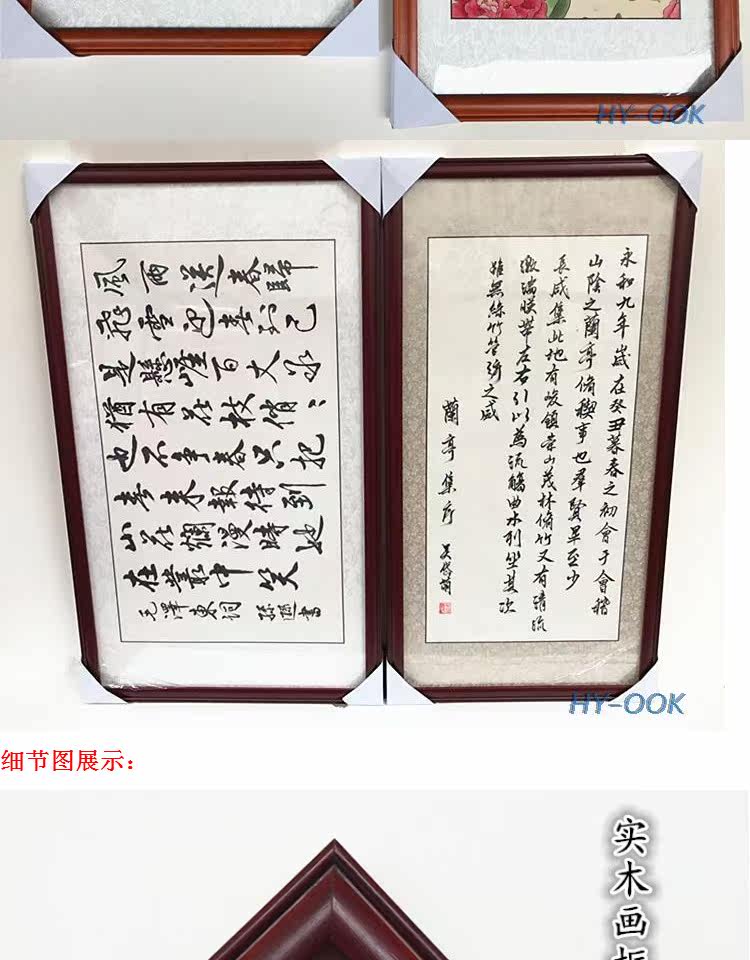 HY-OOK
風雨送春歸
飛雪迎春到已
是懸崖百丈冰
猶有花枝俏〻
也不爭春只把
春來報待到
山花爛漫時她
在叢中笑
毛澤東詞
永和九年歲在癸丑暮春之初會于會稽
山陰之蘭亭脩稧事也羣賢畢至少
長咸集此地有峻領崇山茂林脩竹又有清流
激湍暎帶左右引以為流觴曲水列坐其次
雖無絲竹管弦之盛
蘭亭集序
HY-OOK
细节图展示:
实木画框